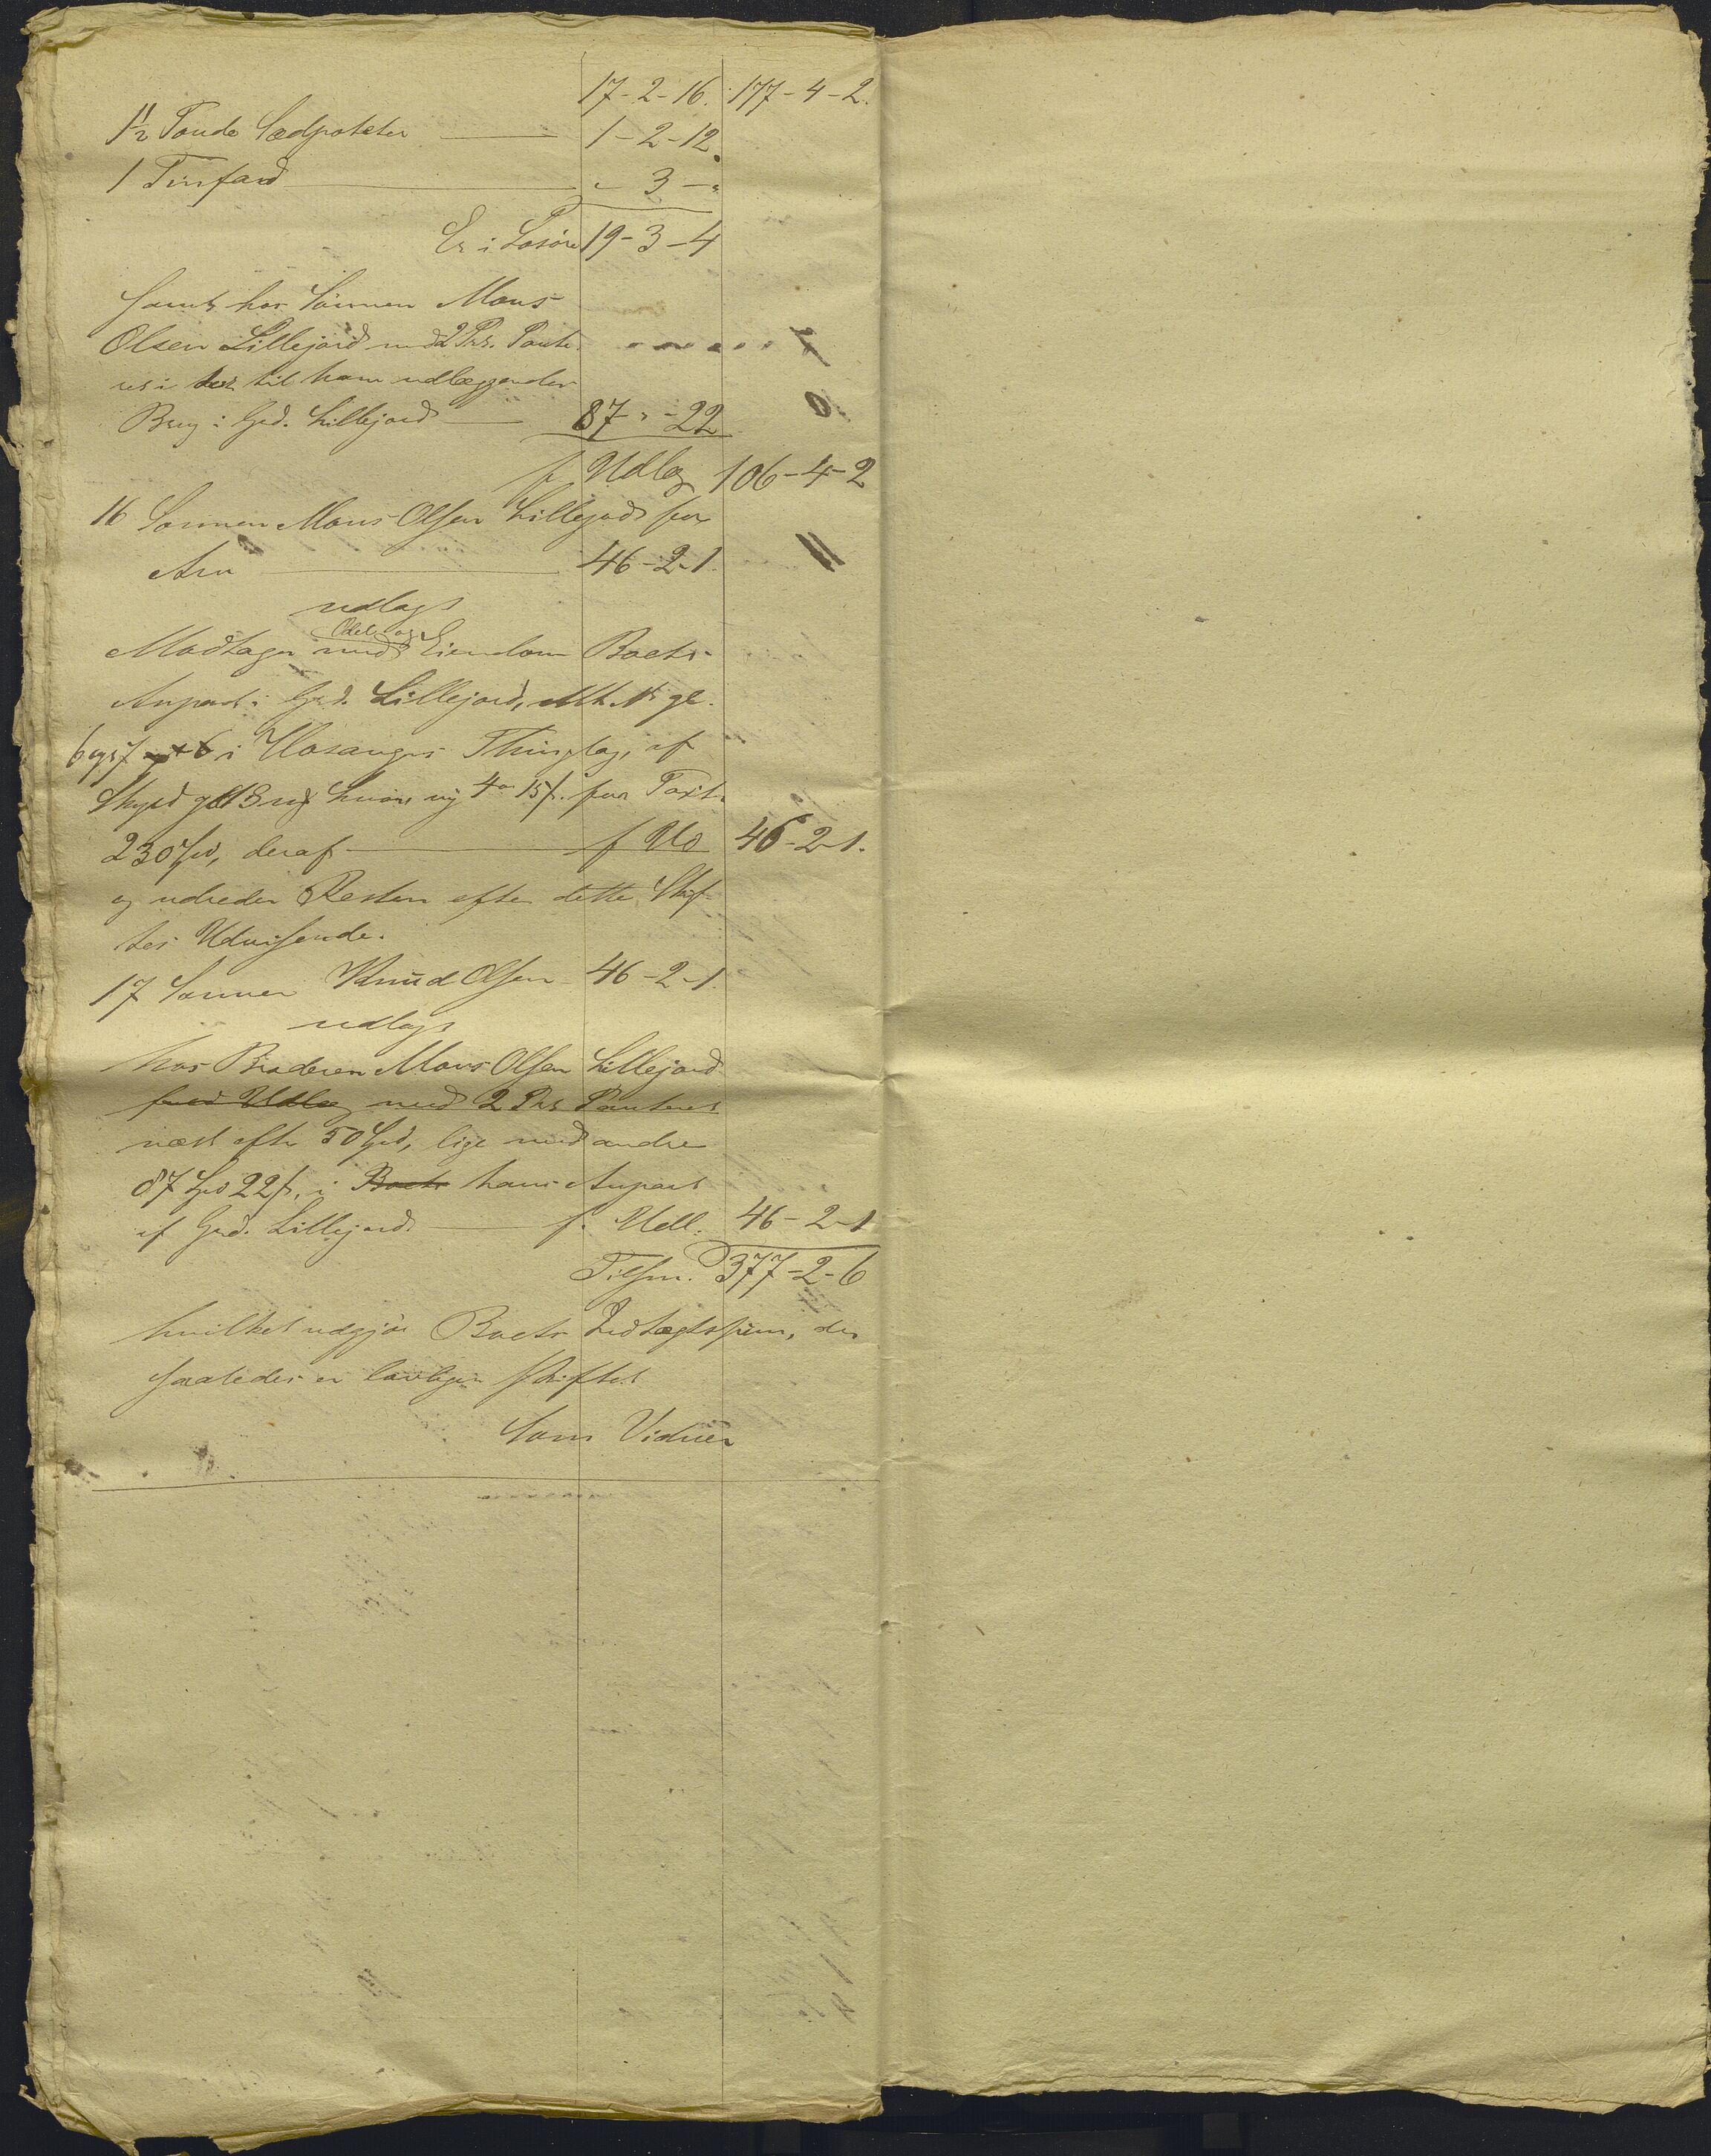 17-2-16. 177-4-2.
1½ Tønde Sædpoteter — 1-2-12.
1 Tinfad — " 3 - "
Er i Løsøre 19-3-4
samt hos Sønnen Mons
Olsen Lillejord med 2 Pr. Pante-
ret i det til ham udlæggende
Brug i Grd. Lillejord — 87 " - 22
f Udlæg 106-4-2
16 Sønnen Mons Olsen Lillejord for
Arv — 46-2-1.
udlagt
Modtager med Odel og Eiendom Boets
Anpart i Grd. Lillejord, Mt. gl.
i Hosangers Thinglag, af
Skyld ny 4 ort 15 s. for Taxt.
230 Spd, deraf — f Ud 46-2-1.
og udreder Resten efter dette Skif-
tes Udvisende.
17 Sønnen Knud Olsen 46-2-1.
udlagt
hos Broderen Mons Olsen Lillejord
med 2 Prs Panteret
næst efter 50 Spd, lige med andre
87 Spd 22 s, i Boets hans Anpart
af Grd. Lillejord — f. Udl. 46-2-1
Tilsm. 377-2-6
hvilket udgjør Boets Indtægtssum, der
saaledes er lovligen skiftet
Som Vidner